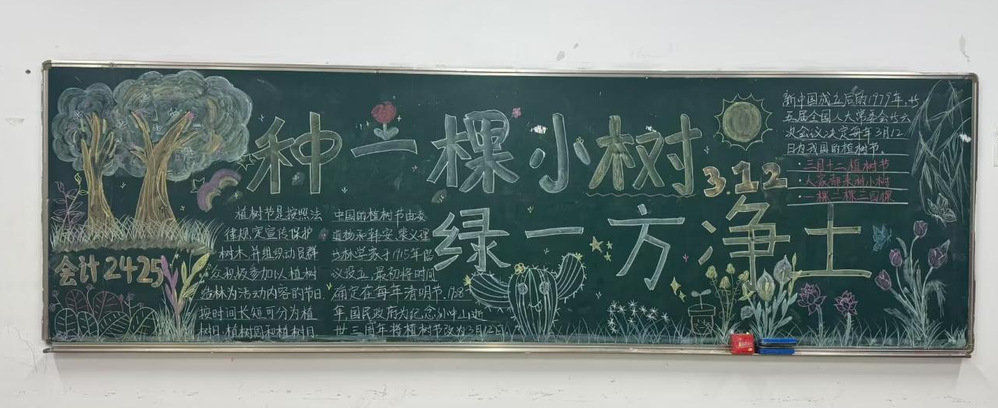 种一棵小树
绿一方净土
3.12
会计2425
植树节是按照法
律规定宣传保护
树木,并组织动员群
众积极参加以植树
造林为活动内容的节日.
按时间长短可分为植
树日,植树周和植树月
中国的植树节由凌
道扬和韩安、裴义理
等林学家于1915年倡
议设立,最初将时间
确定在每年清明节.1928
年国民政府为纪念孙中山逝
世三周年将植树节改为3月12日
新中国成立后的1979年,
五届全国人大常委会
次会议决定每年3月12
日为我国的植树节.
·三月十二植树节
·人家都来树小树
·一棵一棵